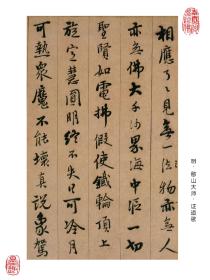 相應了了見無一法物亦無人
亦無佛大千沙界海中漚一切
聖賢如電拂假使鐵輪頂上
旋定慧圓明終不失日可冷月
可熱衆魔不能壞真說象駕
明·憨山大师·证道歌